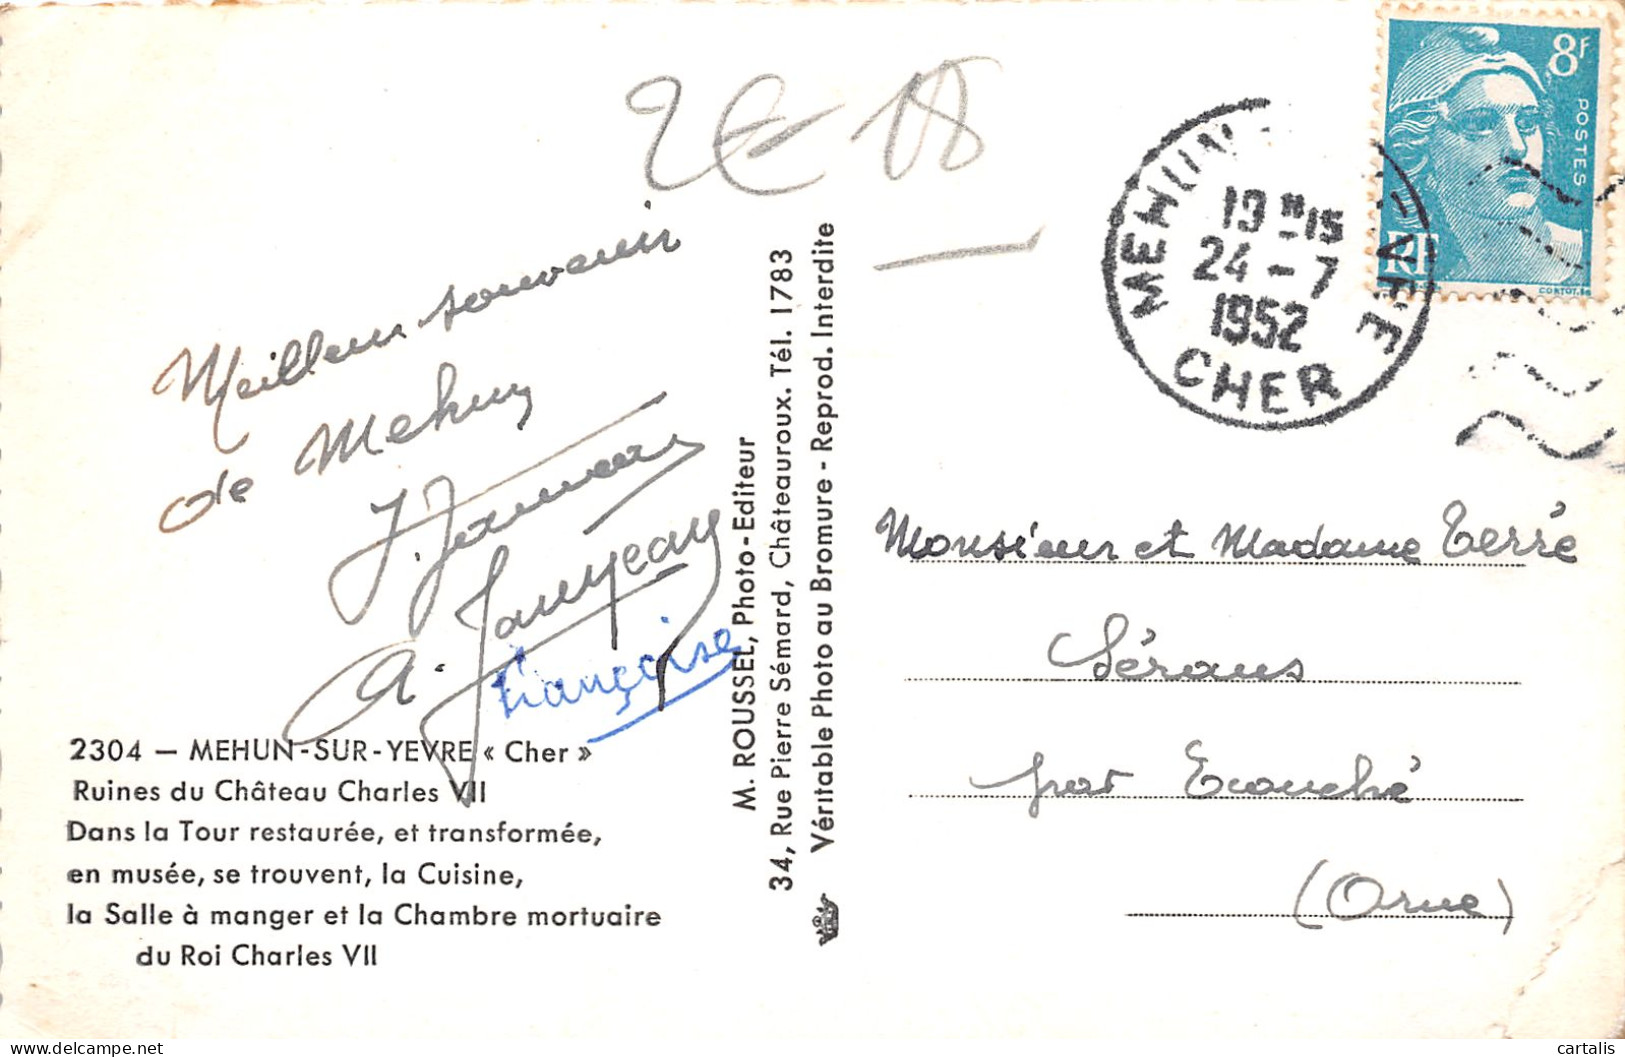 2€ 18
Meilleur souvenir
de Mehun
A. Janvjeau
Françoise
2304 — MEHUN-SUR-YEVRE « Cher »
Ruines du Château Charles VII
Dans la Tour restaurée, et transformée,
en musée, se trouvent, la Cuisine,
la Salle à manger et la Chambre mortuaire
du Roi Charles VII
M. ROUSSEL, Photo-Editeur
34, Rue Pierre Sémard, Châteauroux. Tél. 1783
Véritable Photo au Bromure - Reprod. Interdite
8F
POSTES
RF
CORTOT.SC
MEHUN
YEVRE
19H15
24-7
1952
CHER
Monsieur et Madame Terré
Sérans
par Ecouché
(Orne)
cartalis